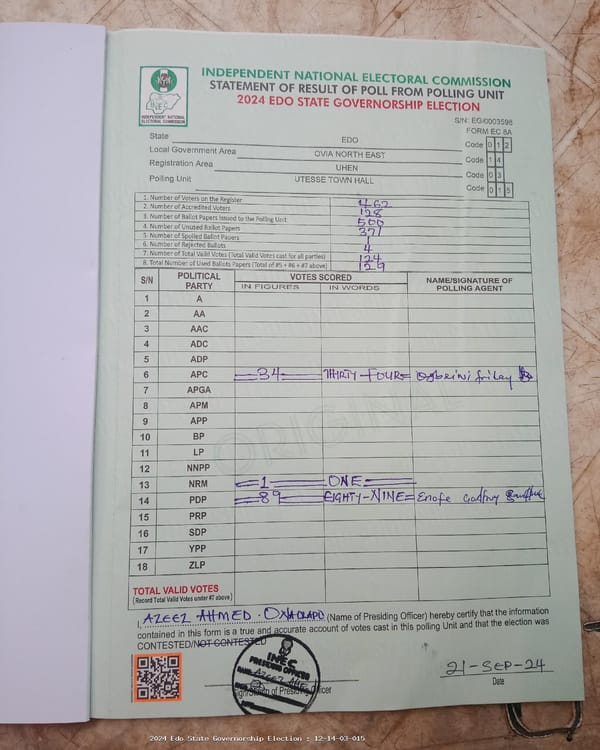 INDEPENDENT NATIONAL ELECTORAL COMMISSION
STATEMENT OF RESULT OF POLL FROM POLLING UNIT
2024 EDO STATE GOVERNORSHIP ELECTION
INEC
INDEPENDENT NATIONAL ELECTORAL COMMISSION
S/N: EG/0003598
FORM EC 8A
State EDO Code 0 1 2
Local Government Area OVIA NORTH EAST Code 1 4
Registration Area UHEN Code 0 3
Polling Unit UTESSE TOWN HALL Code 0 1 5
1. Number of Voters on the Register 462
2. Number of Accredited Voters 128
3. Number of Ballot Papers Issued to the Polling Unit 500
4. Number of Unused Ballot Papers 371
5. Number of Spoiled Ballot Papers 1
6. Number of Rejected Ballots 4
7. Number of Total Valid Votes (Total Valid Votes cast for all parties) 124
8. Total Number of Used Ballots Papers (Total of #5 + #6 + #7 above) 129
S/N POLITICAL PARTY VOTES SCORED NAME/SIGNATURE OF POLLING AGENT
IN FIGURES IN WORDS
1 A
2 AA
3 AAC
4 ADC
5 ADP
6 APC 34 THIRTY-FOUR
7 APGA
8 APM
9 APP
10 BP
11 LP
12 NNPP
13 NRM 1 ONE
14 PDP 89 EIGHTY-NINE Enofe Godfrey
15 PRP
16 SDP
17 YPP
18 ZLP
ORIGINAL
TOTAL VALID VOTES
(Record Total Valid Votes under #7 above)
I, AZEEZ AHMED (Name of Presiding Officer) hereby certify that the information
contained in this form is a true and accurate account of votes cast in this polling Unit and that the election was
CONTESTED/NOT CONTESTED
INEC
PRESIDING OFFICER
21-SEP-24
Signature of Presiding Officer Date
2024 Edo State Governorship Election : 12-14-03-015